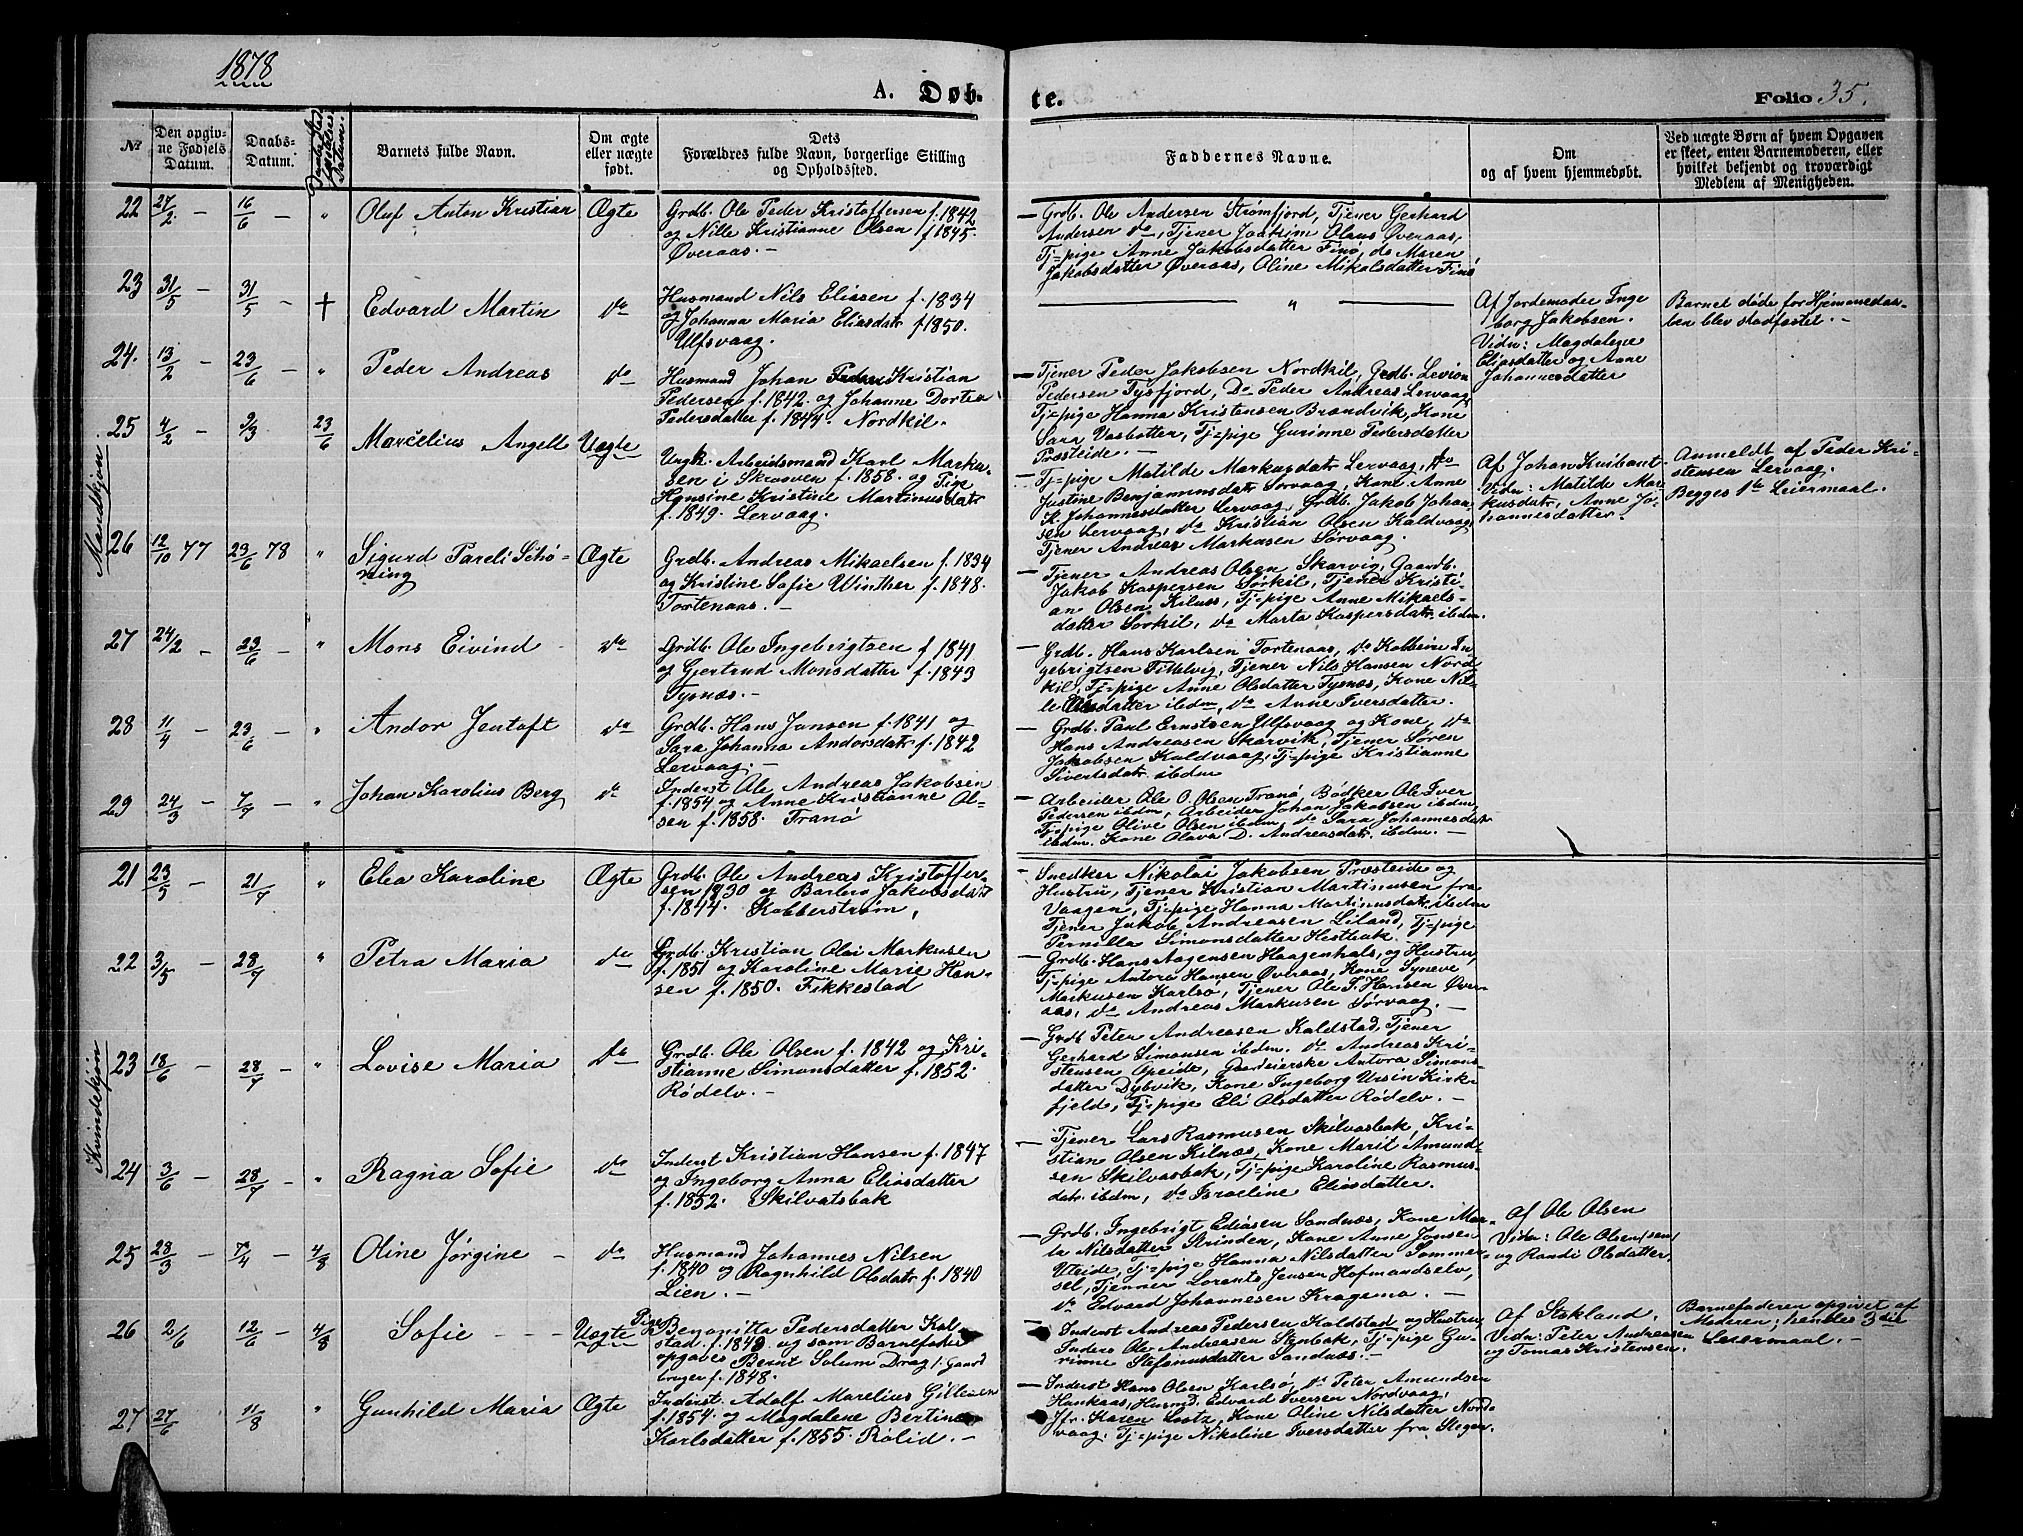 1878
A. Døb-
te.
Folio 35.
№
Den opgiv-
ne Fødsels
Datum.
Daabs-
Datum.
Barnets fulde Navn.
Om ægte
eller uægte
født.
Dets
Forældres fulde Navn, borgerlige Stilling
og Opholdssted.
Faddernes Navne.
Om
og af hvem hjemmedøbt.
Ved uægte Børn af hvem Opgaven
er skeet, enten Barnemoderen, eller
hvilket bekjendt og troværdigt
Medlem af Menigheden.
Mandkjøn
22 27/2 — 16/6 — " Oluf Anton Kristian Ægte
Grdb. Ole Peder Kristoffersen f. 1842
og Nille Kristianne Olsen f. 1845.
Øveraas. —
— Grdb. Ole Andersen Strømfjord, Tjener Gerhard
Andersen do, Tjener Joakim Olaus Øveraas,
Tj=pige Anne Jakobsdatter Finø, do Maren
Jakobsdatter Øveraas, Oline Mikalsdatter Finø
23 31/5 — 31/5 — † Edvard Martin do
Husmand Nils Eliasen f. 1834
og Johanna Maria Eliasdatr f. 1850.
Ulfsvaag.
"
Af Jordemoder Inge
borg Jakobsen.
Vidn: Magdalene
Eliasdatter og Anne
Johannesdatter
Barnet døde før Hjemmedaa-
ben blev stadfæstet. —
24. 13/2 — 23/6 — " Peder Andreas do
Husmand Johan Kristian
Pedersen f. 1842 og Johanne Dortea
Pedersdatter f. 1844. Nordkil.
— Tjener Peder Jakobsen Nordkil, Grdb. Levion
Pedersen Tysfjord, Do Peder Andreas Lervaag
Tj=pige Hanna Kristensen Brandvik, Kone
Sara Vasbotter, Tj=pige Gurinne Pedersdatter
Præsteide. —
25 4/2 — 3/3 23/6 Marcelius Angell Uægte
Ungk. Arbeidsmand Karl Marku-
sen i Skroven f. 1858. og Pige
Hansine Kristine Martinusdatr
f. 1849. Lervaag.
— Tj=pige Matilde Markusdatr Lervaag, do
Justine Benjaminsdatr Sørvaag, Kone Anne
K. Johannesdatter Lervaag, Grdb. Jakob Johan-
sen Lervaag, do Kristian Olsen Kaldvaag
Tjener Andreas Markusen Sørvaag. —
Af Johan Kvibant
Vidn: Matilde Mar-
kusdatr, Anne Jo-
hannesdatter.
Anmeldt af Peder Kri-
stensen Lervaag.
Begges 1te Leiermaal.
26 12/10 77 23/6 78 " Sigurd Pareli Schø-
ning Ægte
Grdb. Andreas Mikaelsen f. 1834
og Kristine Sofie Winther f. 1848.
Tortenaas. —
— Tjener Andreas Olsen Skarvig, Gaardb.
Jakob Kaspersen Sørkil, Tjener Kristi-
an Olsen Kilnæs, Tj=pige Anne Mikaels-
datter Sørkil, do Marta Kaspersdatr ibdm.
27 24/2 — 23/6 — " Mons Eivind — do
Grdb. Ole Ingebrigtsen f. 1841
og Gjertrud Monsdatter f. 1843
Tysnæs. —
— Grdb. Hans Karlsen Tortenaas, do Kolbein In-
gebrigtsen Tittelvig, Tjener Nils Hansen Nord-
kil, Tj=pige Anne Olsdatter Tysnæs, Kone Nil-
le Olsdatter ibdm, do Anne Iversdatter.
28 11/4 — 23/6 — " Andor Jentoft do
Grdb. Hans Jansen f. 1841 og
Sara Johanna Andorsdatr f. 1842
Lervaag. —
— Grdb. Paul Ernstsen Ulfsvaag og Kone, do
Hans Andreasen Skarvik, Tjener Søren
Jakobsen Kaldvaag, Tj=pige Kristianne
Sivertsdatr ibdm
29 24/3 — 7/7 — " Johan Karolius Berg do
Inderst Ole Andreas Jakobsen
f. 1854 og Anne Kristianne Ol-
sen f. 1858. Tranø
— Arbeider Ole O. Olsen Tranø, Bødker Ole Iver
Pedersen ibdm, Arbeider Johan Jakobsen ibdm,
Tj=pige Olive Olsen ibdm, do Sara Johannesdatr
ibdm. Kone Olava D. Andreasdatr. ibdm. —
Kvindekjøn
21 23/5 — 21/7 " Elea Karoline Ægte
Grdb. Ole Andreas Kristoffer-
sen 1830 og Barbro Jakobsdatr
f. 1844. Kobberstrøm,
— Snedker Nikolai Jakobsen Præsteide og
Hustru, Tjener Kristian Martinusen fra
Vaagen, Tj=pige Hanna Martinusdatr. ibdem
Tjener Jakob Andreasen Liland, Tj=pige
Pernilla Simonsdatter Hestbak. —
22 3/5 — 28/7 " Petra Maria do
Grdb. Kristian Olai Markusen
f. 1851 og Karoline Marie Han-
sen f. 1850. Fikkestad
— Grdb. Hans Aagensen Haagenhals, og Hustru,
Tj=pige Antora Hansen Øveraas, Kone Syneve
Markusen Karlsø, Tjener Ole P. Hansen Øver-
aas, do Andreas Markusen Sørvaag. —
23 18/6 — 28/7 — " Lovise Maria do
Grdb. Ole Olsen f. 1842 og Kri-
stianne Simonsdatter f. 1852.
Rødelv. —
— Grdb Peter Andreasen Kaldstad, Tjener
Gerhard Simonsen ibdem. do Andreas Kri-
stensen Opeide, Gaardeierske Antora Simons-
datter Dybvik, Kone Ingeborg Ursin Kirk-
fjeld, Tj=pige Eli Olsdatter Rødelv. —
24 3/6 — 28/7 — " Ragna Sofie do
Inderst Kristian Hansen f. 1847
og Ingeborg Anna Eliasdatter
f. 1852. Skilvatsbak
— Tjener Lars Rasmusen Skilvasbak, Kri-
stian Olsen Kilnæs, Kone Marit Amund-
sen Skilvasbak, Tj=pige Karoline Rasmus-
datr. ibdm, do Israeline Eliasdatter.
25 28/3 — 7/4 — 4/8 Oline Jørgine — do
Husmand Johannes Nilsen
f. 1840 og Ragnhild Olsdatr f. 1840
Lien. —
— Grdb. Ingebrigt Ediasen Sandnæs, Kone Mar-
ta Nilsdatter Strinden, Kone Anne Jonsen
Uteide, Tj=pige Hanna Nilsdatter Sommer-
sel, Tjenner Lorents Jensen Hofmandselv,
do Edvard Johannesen Kragemo. —
Af Ole Olsen
Vidn: Ole Olsen (sen)
og Randi Olsdatter.
26 2/6 — 12/6 — 4/8 Sofie — — — Uægte
Pige Beragitta Pedersdatter Kal-
stad. f. 1849 og som Barnefader
opgaves Bernt Solum Drag. Gaard
bruger f. 1848.
— Inderst Andreas Pedersen Kaldstad og Hustru
Inders Ole Andreasen Stenbak, Tj=pige Gu-
rinne Stefanusdatter Sandnæs. —
Af Stokland.
Vidn: Peter Andreasen
og Tomas Kristensen.
Barnefaderen opgivet af
Moderen; hendes 3die
Leiermaal. —
27 27/6 — 11/8 " Gunhild Maria Ægte
Inderst. Adolf Marelius Gillesen
f. 1854. og Magdalene Bertine
Karlsdatter f. 1855. Rølid. —
— Inderst Hans Olsen Karlsø, do Peter Amundsen
Haukaas, Husmd. Edvard Iversen Nordvaag,
Jfr. Karen Lootz, Kone Oline Nilsdatter Nord-
vaag, Tj=pige Nikoline Iversdatter fra Stegen.